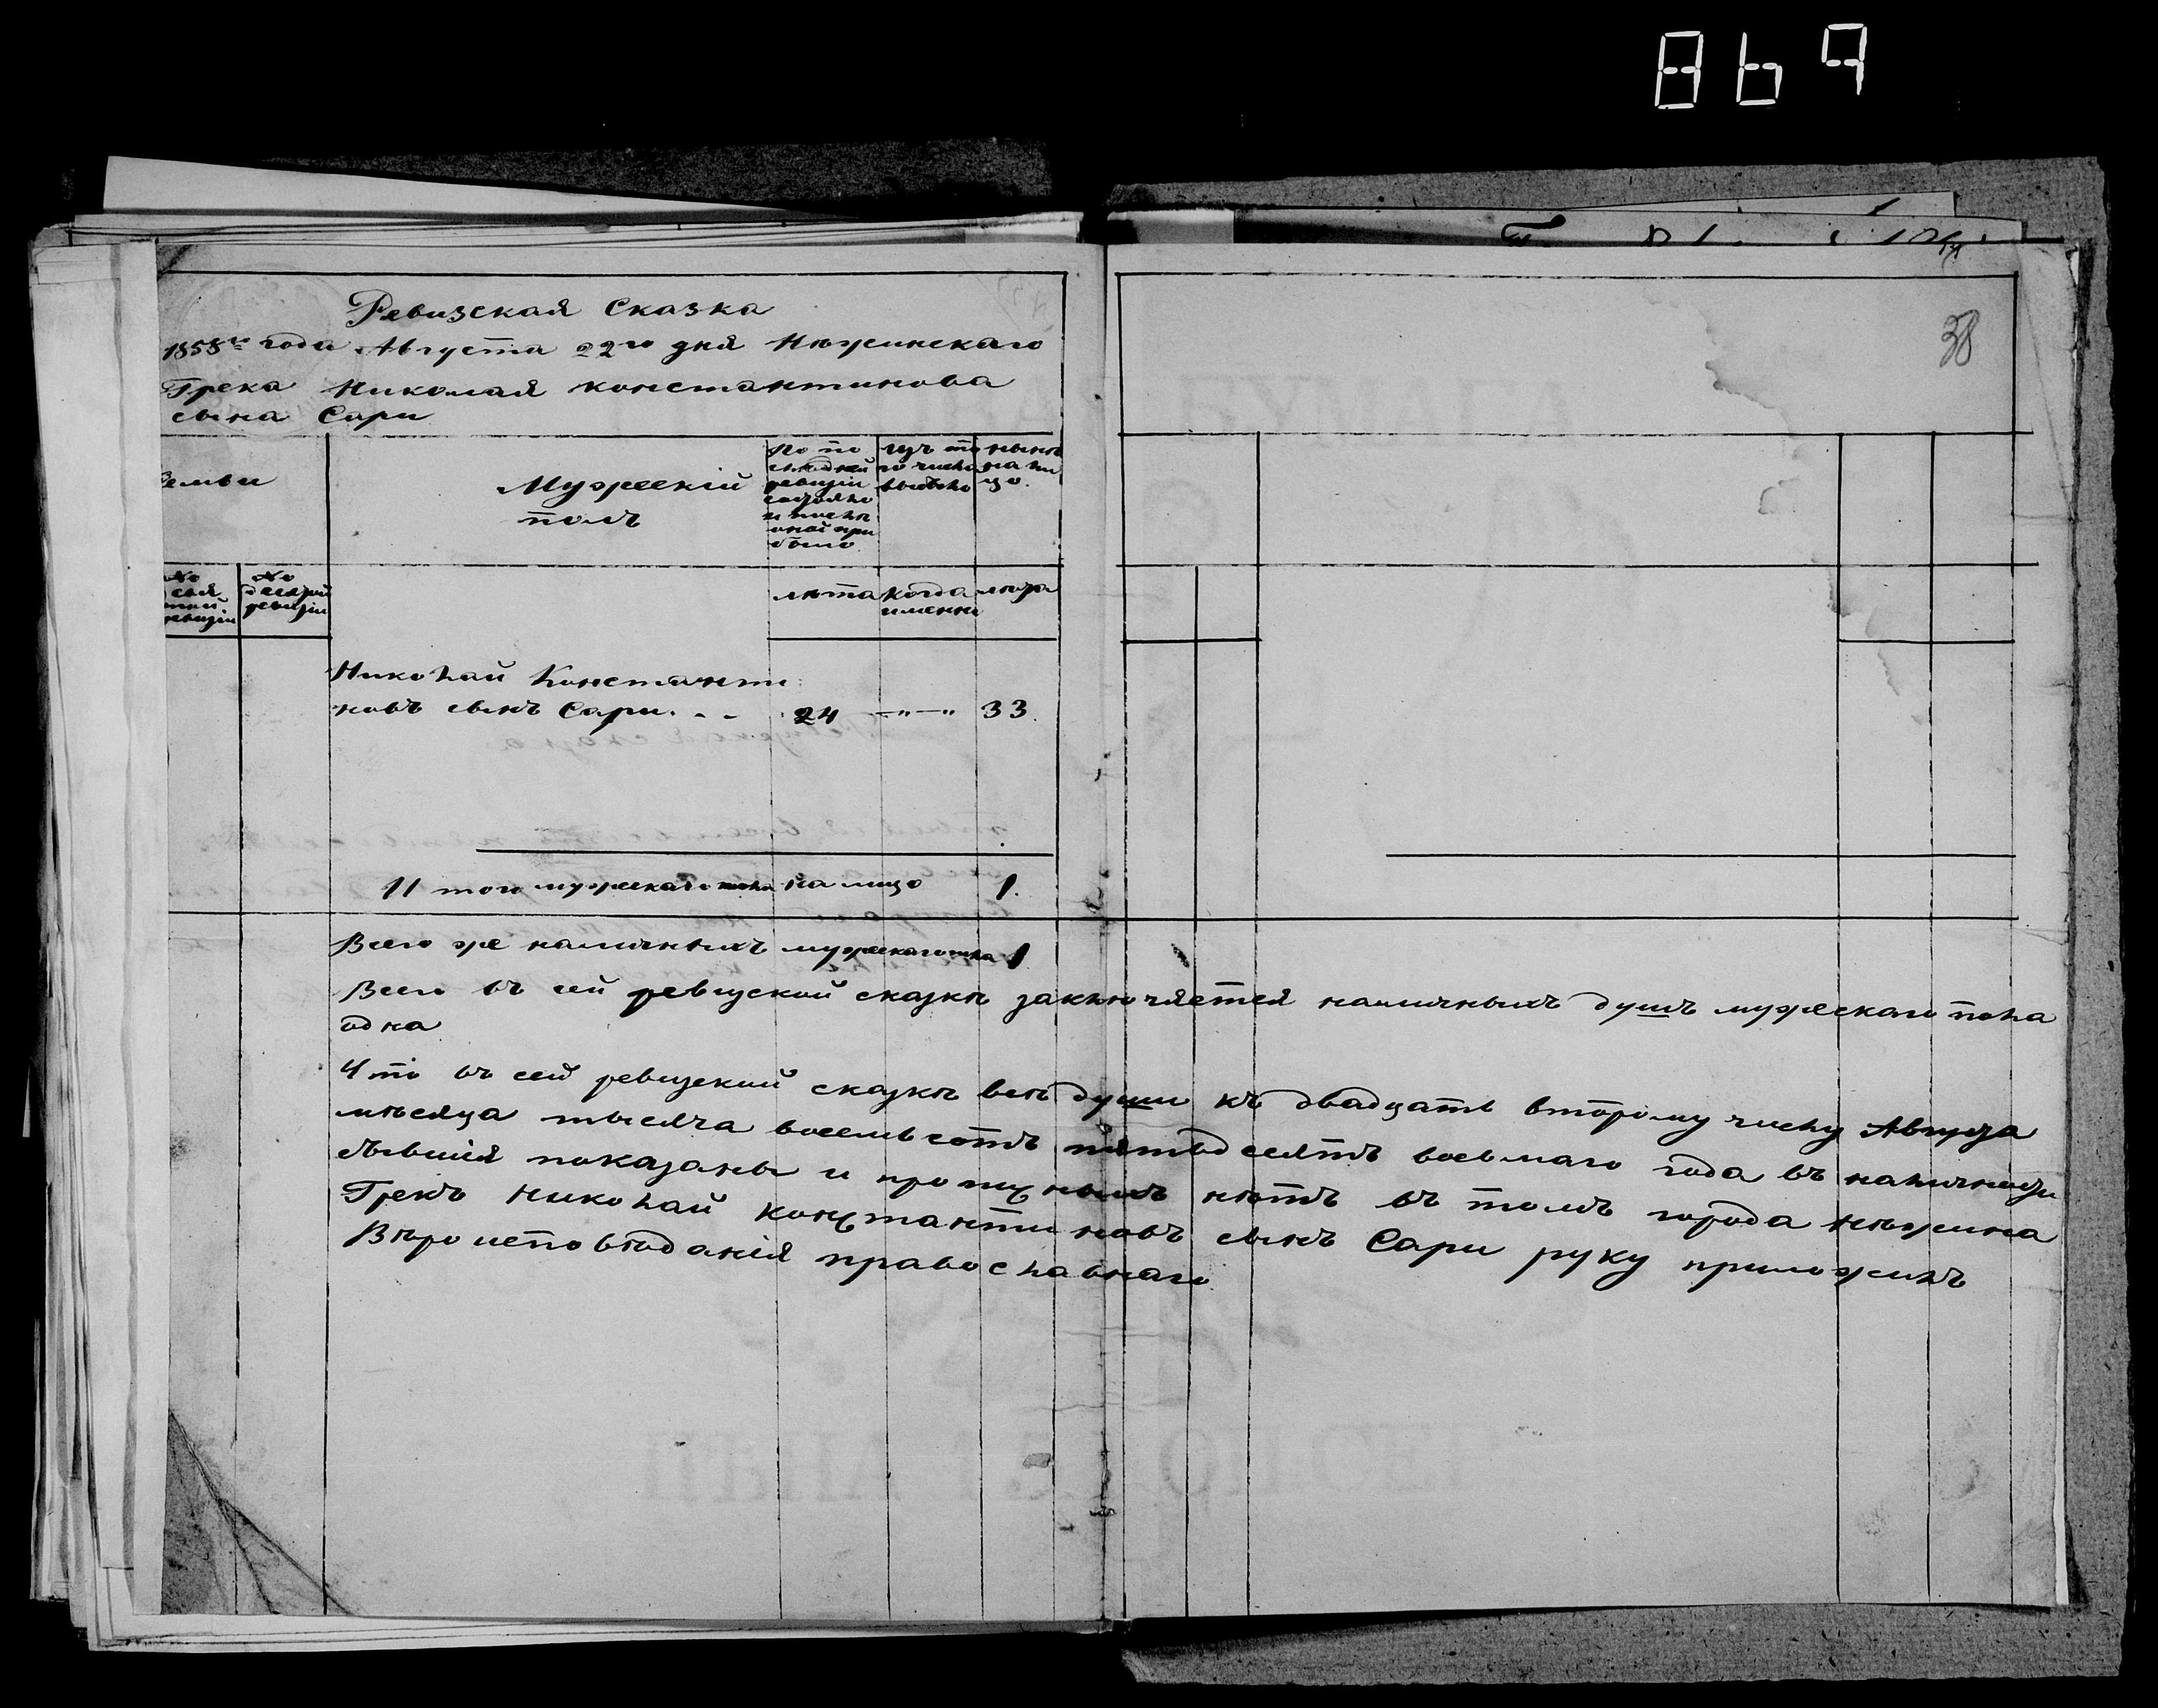 869
38
Ревизская Сказка
1858го года Августа 22го дня Нѣжинскаго
Грека Николая Константинова
сына Сари
Семьи
Мужескій
полъ
По по
слѣдней
ревизіи
состояло
и послѣ
оной при
было
Изъ то
го числа
выбыло
нынѣ
на ли
цо.
№
ревизіи
№
ревизіи
лѣта
когда
именно
лѣта
Николай Константи
новъ сынъ Сари. - - 24 —"—" 33.
И того мужескаго пола на лицо 1.
Всего же наличныхъ мужескаго пола 1
Всего въ сей ревизской сказкѣ заключяется наличныхъ душъ мужескаго пола
одна
Что въ сей ревизской сказкѣ всѣ души къ двадцать второму числу Августа
мѣсяца тысяча восемьсотъ пятьдесятъ восьмаго года въ наличности
бывшія показаны и прописныхъ нѣтъ въ томъ города Нѣжина
Грекъ Николай Константиновъ сынъ Сари руку приложилъ
Вѣроисповѣданія православнаго